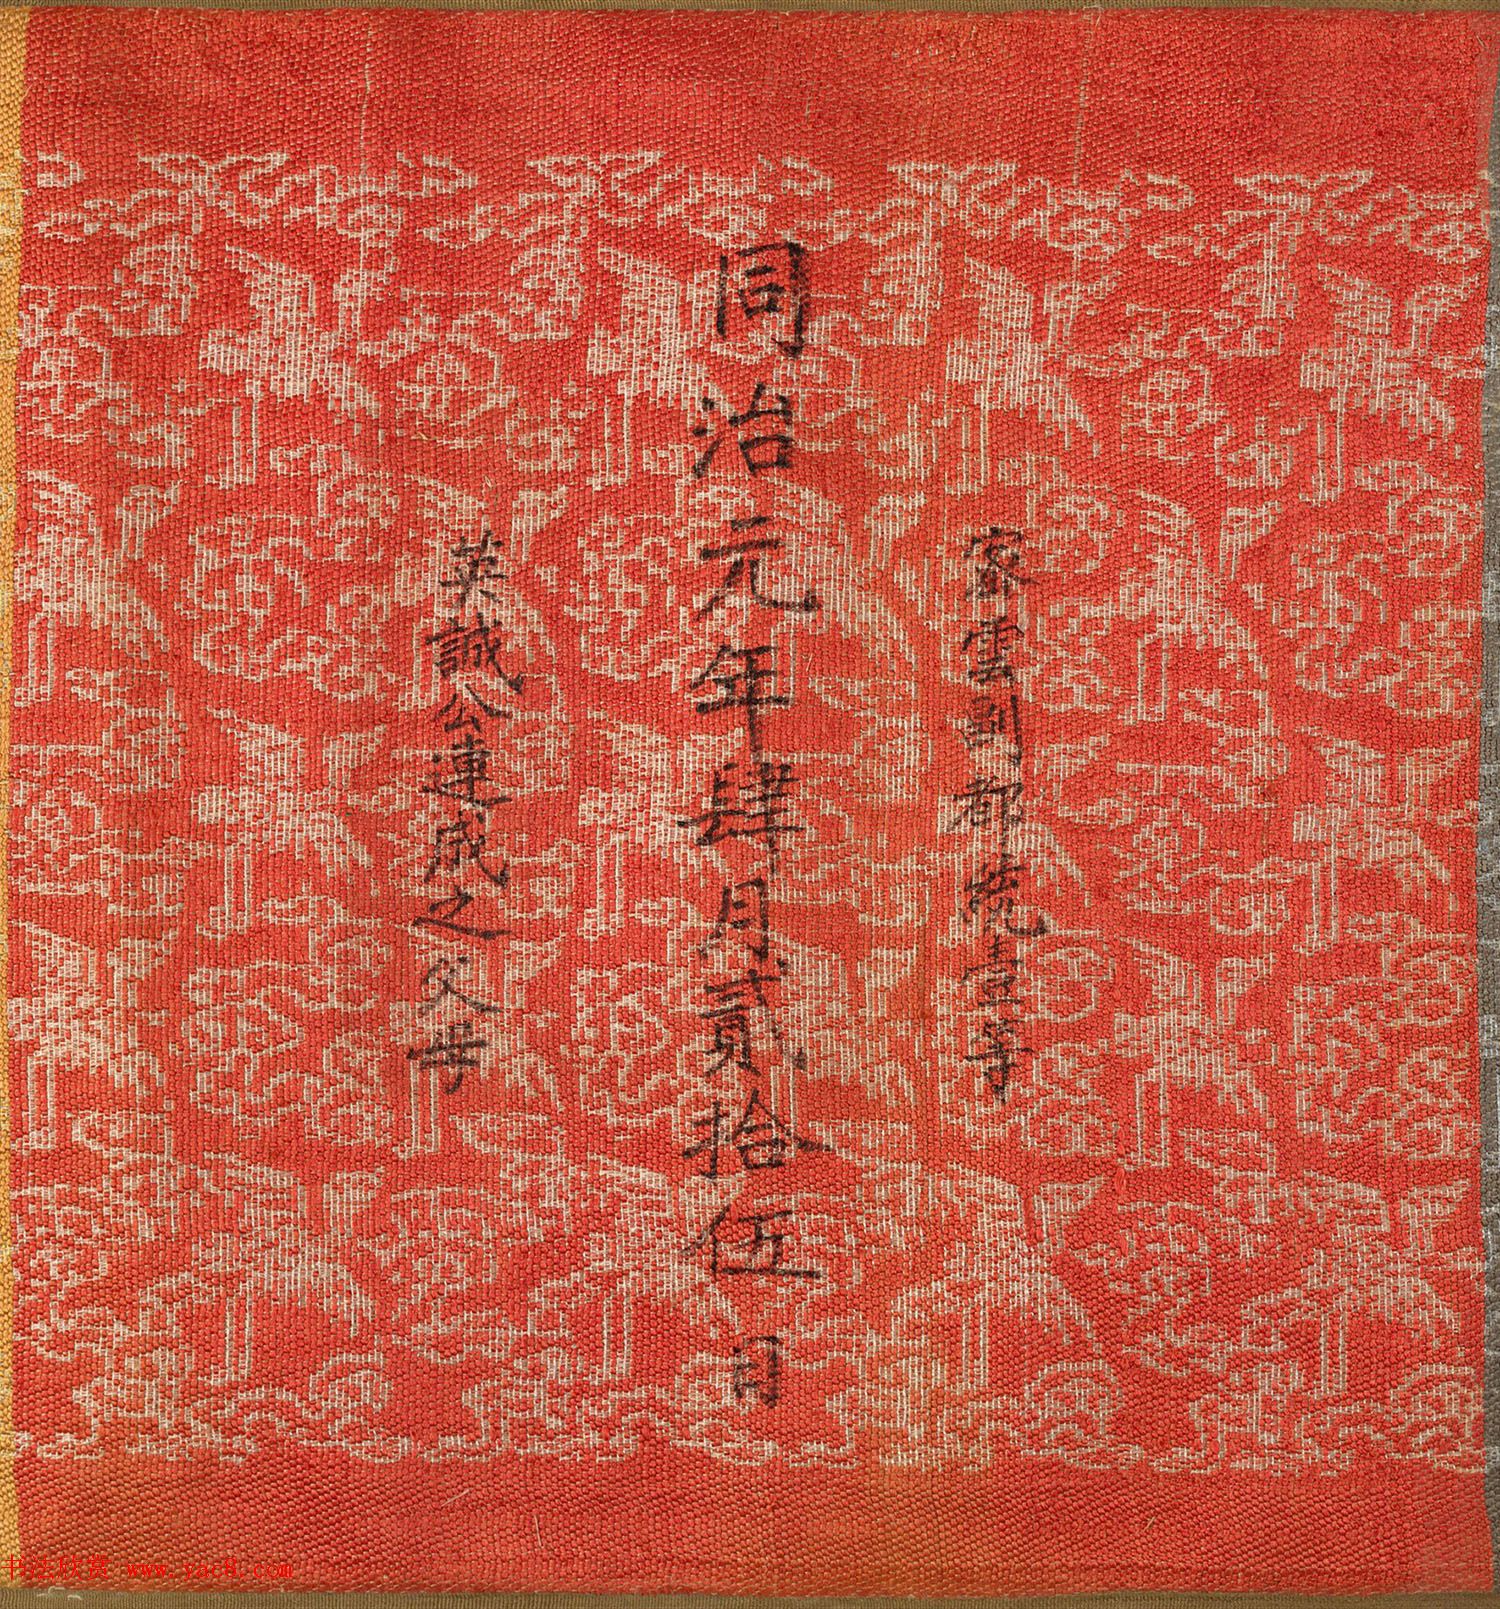 密雲副都統壹等
同治元年肆月貳拾伍日
英誠公連成之父母
书法欣赏 www.yac8.com